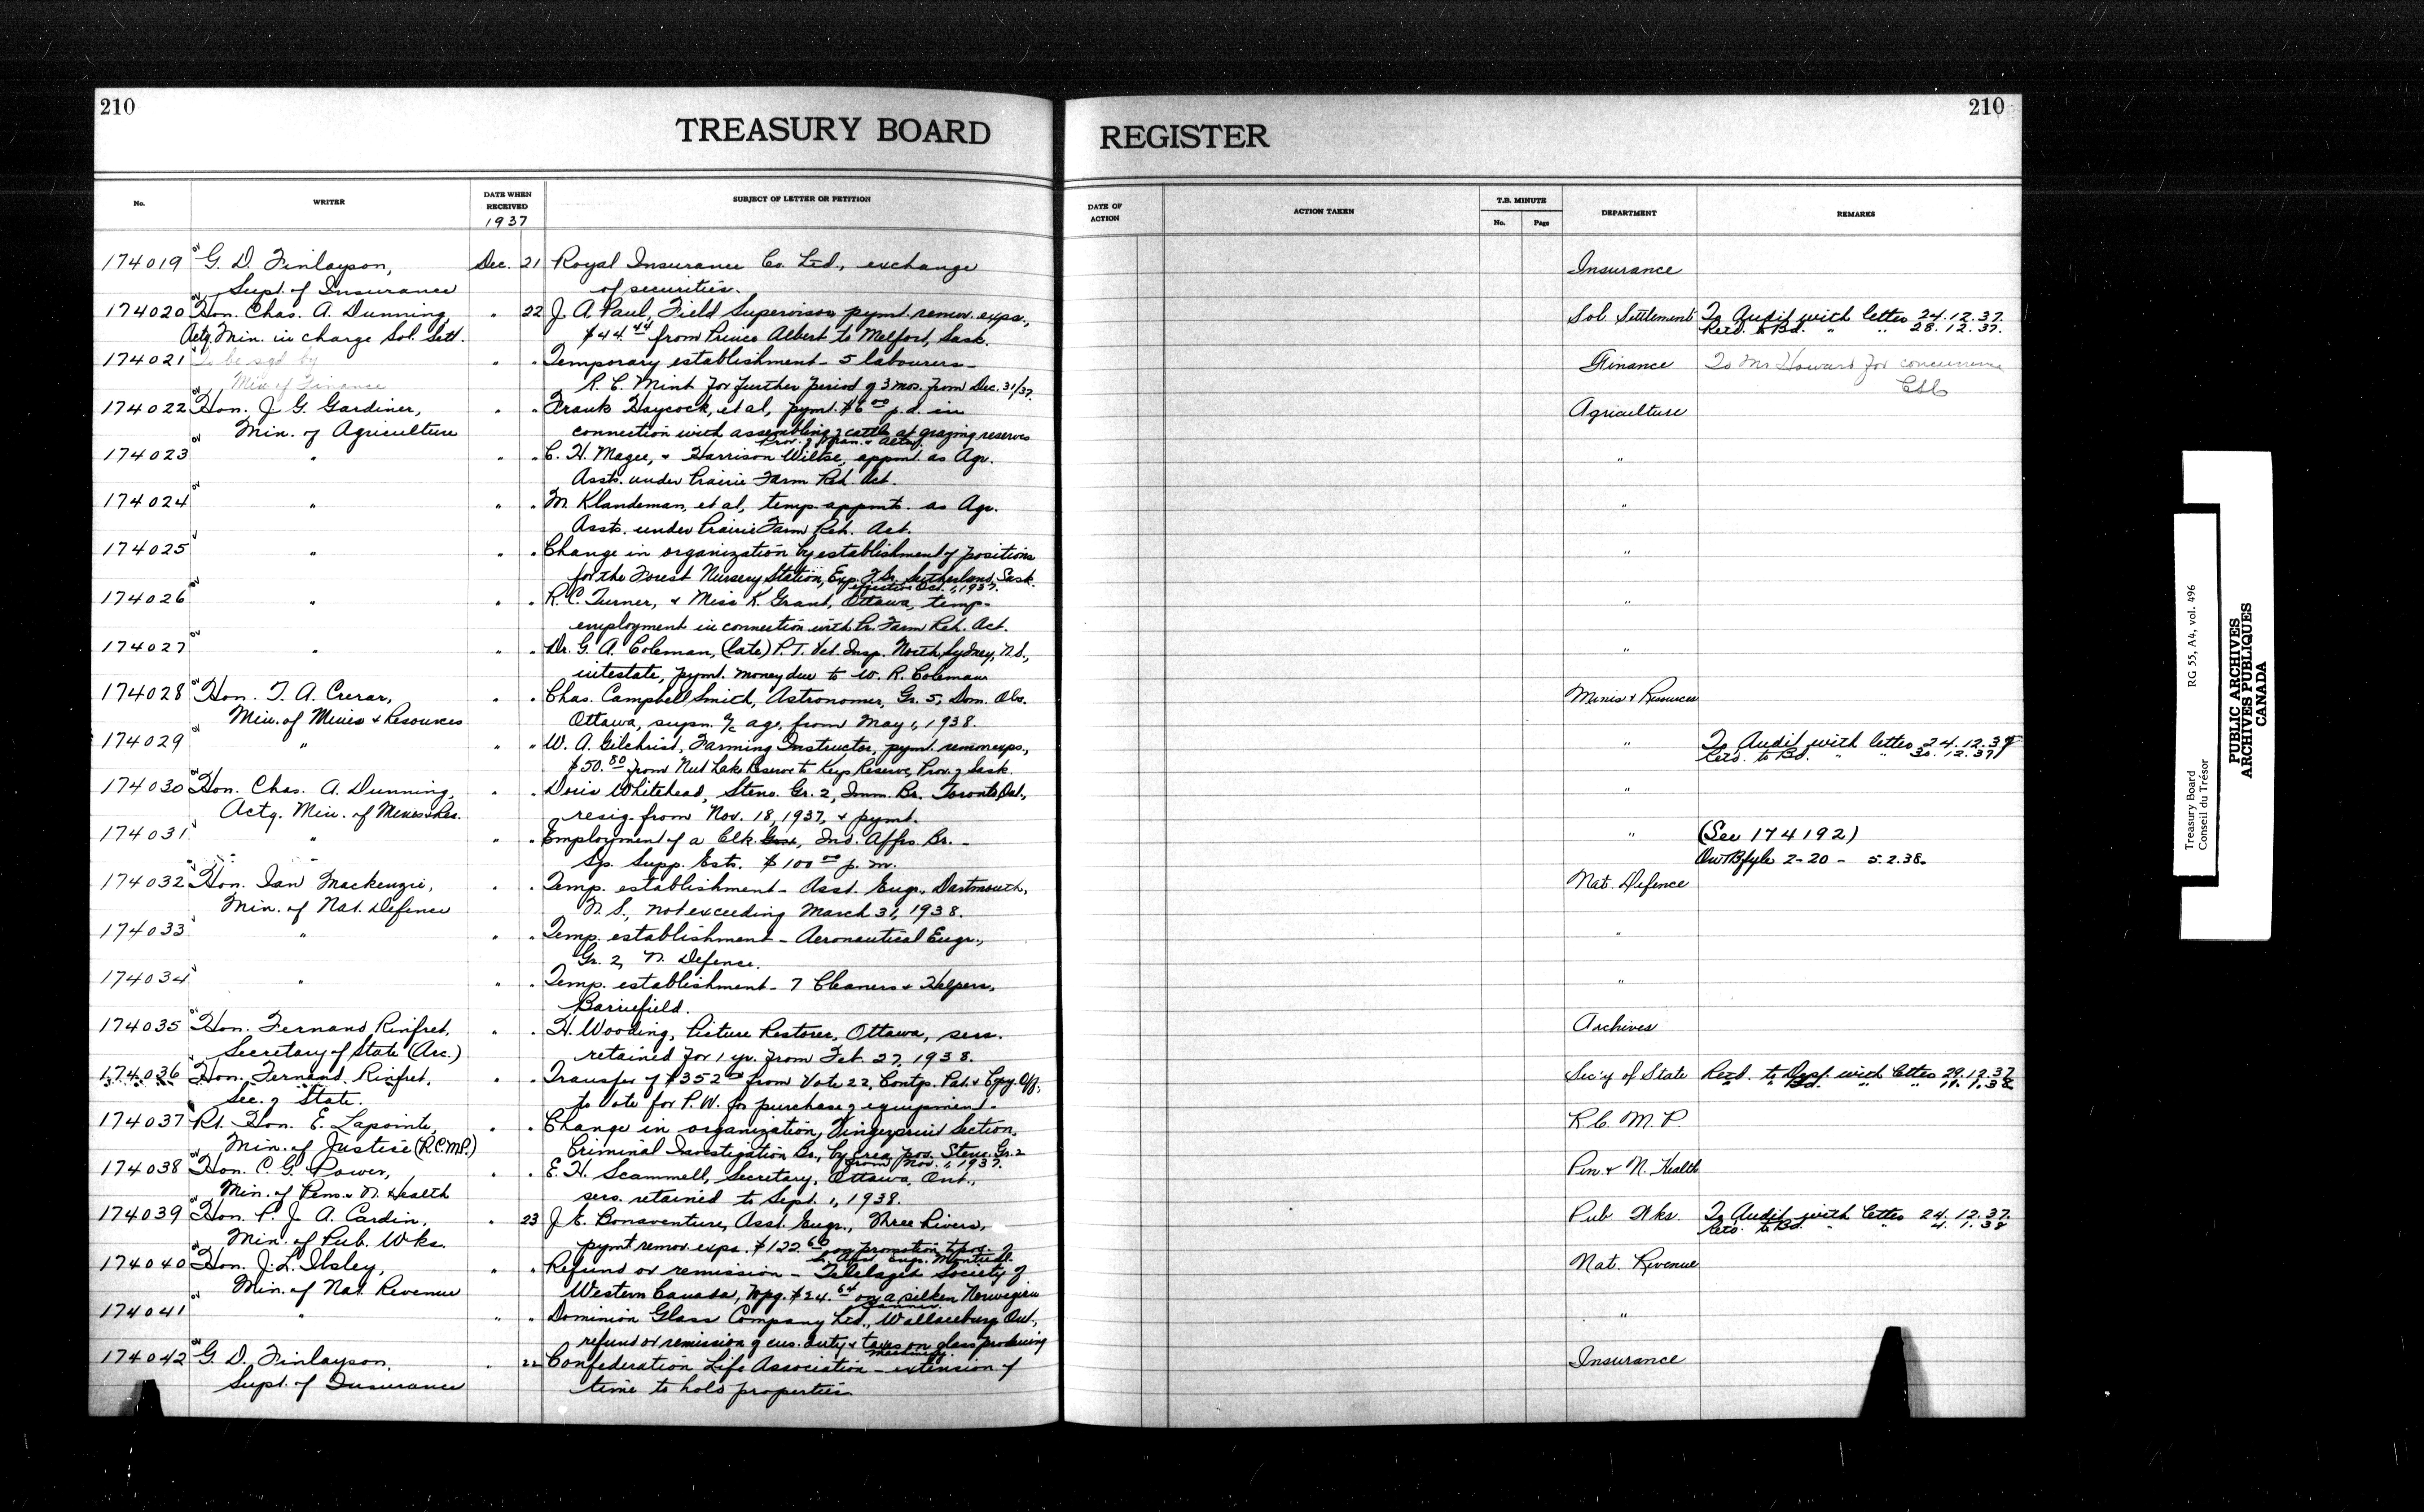 210
TREASURY BOARD
No.
WRITER
DATE WHEN RECEIVED
1937
SUBJECT OF LETTER OR PETITION
174019 G. D. Finlayson, Dec. 21 Royal Insurance Co. Ltd., exchange
Supt. of Insurance of securities.
174020 Hon. Chas. A. Dunning, " 22 J. A. Paul, Field Supervisor, pymt. remov. exps.,
Actg. Min. in charge Sol. Setl. $44.44 from Prince Albert to Melfort, Sask.
174021 To be sgd by " " Temporary establishment - 5 labourers -
Min of Finance R. C. Mint for further period of 3 mos. from Dec. 31/37.
174022 Hon. J. G. Gardiner, " " Frank Haycock, et al, pymt. $6.00 p.d. in
Min. of Agriculture connection with assembling of cattle at grazing reserves
Prov. of Man. & Alta.
174023 " " " C. H. Magee, & Harrison Wiltse, appmt. as Agr.
Assts. under Prairie Farm Reh. Act.
174024 " " " M. Klandeman, et al, temp. appmt. as Agr.
Assts. under Prairie Farm Reh. Act.
174025 " " " Change in organization by establishment of positions
for the Forest Nursery Station, Exp. F. Sr. Sutherland, Sask.
effective Oct. 1, 1937.
174026 " " " R. C. Turner, & Miss K. Grant, Ottawa, temp.
employment in connection with Pr. Farm Reh. Act.
174027 " " " Dr. G. A. Coleman, (late) P. T. Vet. Insp. North Sydney, N.S.,
intestate, pymt. money due to W. R. Coleman
174028 Hon. T. A. Crerar, " " Chas. Campbell Smith, Astronomer, Gr. 5, Dom. Obs.
Min. of Mines & Resources Ottawa, supn. a/c age, from May 1, 1938.
174029 " " " W. A. Gilchrist, Farming Instructor, pymt. remov exps.,
$50.80 from Nut Lake Reserve to Keys Reserve, Prov. of Sask.
174030 Hon. Chas. A. Dunning, " " Doris Whitehead, Steno. Gr. 2, Imm. Br. Toronto, Ont.,
Actg. Min. of Mines & Res. resig. from Nov. 18, 1937, & pymt.
174031 " " " Employment of a Clk. , Ind. Affrs. Br. -
Sp. Supp. Ests. $100.00 p. m.
174032 Hon. Ian Mackenzie, " " Temp. establishment - Asst. Engr., Dartmouth,
Min. of Nat. Defence N. S., not exceeding March 31, 1938.
174033 " " " Temp. establishment - Aeronautical Engr.,
Gr. 2, N. Defence.
174034 " " " Temp. establishment - 7 Cleaners & Helpers,
Barriefield.
174035 Hon. Fernand Rinfret, " " H. Wooding, Picture Restorer, Ottawa, sers.
Secretary of State (Arc.) retained for 1 yr. from Feb. 27, 1938.
174036 Hon. Fernand Rinfret, " " Transfer of $352.00 from Vote 22, Contgs. Pat. & Cpy. Off.
Sec. of State. to Vote for P. W. for purchase of equipment.
174037 Rt. Hon. E. Lapointe, " " Change in organization, Fingerprint Section,
Min. of Justice (R.C.M.P.) Criminal Investigation Br., by crea. pos. Steno. Gr. 2
from Nov. 1, 1937.
174038 Hon. C. G. Power, " " E. H. Scammell, Secretary, Ottawa, Ont.,
Min. of Pens. & N. Health sers. retained to Sept. 1, 1938.
174039 Hon. P. J. A. Cardin, " 23 J. E. Bonaventure, Asst. Engr., Three Rivers,
Min. of Pub. Wks. pymt remov. exps. $122.60 on promotion to pos. of
Sr. Asst. Engr. Montreal.
174040 Hon. J. L. Ilsley, " " Refund or remission - Telelaget Society of
Min. of Nat. Revenue Western Canada, Wpg. $24.64 on a silken Norwegian
banner.
174041 " " " Dominion Glass Company Ltd., Wallaceburg, Ont.,
refund or remission of cus. duty & taxes on glass producing
machinery.
174042 G. D. Finlayson, " 22 Confederation Life Association - extension of
Supt. of Insurance time to hold properties.
210
REGISTER
DATE OF ACTION
ACTION TAKEN
T.B. MINUTE
No.
Page
DEPARTMENT
REMARKS
Insurance
Sol. Settlement To Audit with letter 24.12.37.
Retd. to Bd. " " 28.12.37.
Finance To Mr Howard for concurrence
Agriculture
"
"
"
"
"
Mines & Resources
" To Audit with letter 24.12.37
Retd. to Bd. " " 30.12.37
"
" (See 174192)
2-20 - 5.2.38.
Nat. Defence
"
"
Archives
Sec'y of State Retd. to Dept. with letter 29.12.37
" " Bd. " " 11.1.38
R. C. M. P.
Pen. & N. Health
Pub. Wks. To Audit with letter 24.12.37.
Retd. to Bd. " " 4.1.38
Nat. Revenue
"
Insurance
Treasury Board RG 55, A4, vol. 496
Conseil du Trésor
PUBLIC ARCHIVES
ARCHIVES PUBLIQUES
CANADA